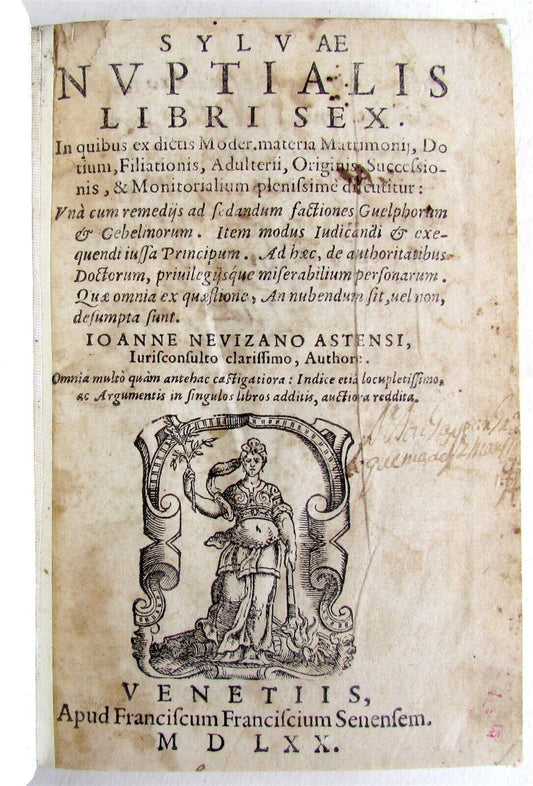 SYLVAE
NVPTIALIS
LIBRI SEX.
In quibus ex dictis Moder. materia Matrimonij, Do
tium, Filiationis, Adulterii, Originis, Successio-
nis, & Monitorialium plenissimè discutitur:
Vnà cum remedijs ad sedandum factiones Guelphorum
& Gebelinorum. Item modus Iudicandi & exe-
quendi iussa Principum. Ad hæc, de authoritatibus
Doctorum, priuilegijsque miserabilium personarum.
Quæ omnia ex quæstione, An nubendum sit, uel non,
desumpta sunt.
IOANNE NEVIZANO ASTENSI,
Iurisconsulto clarissimo, Authore.
Omnia multò quàm antehac castigatiora: Indice etiã locupletissimo,
ac Argumentis in singulos libros additis, auctiora reddita.
VENETIIS,
Apud Franciscum Franciscium Senensem.
MDLXX.